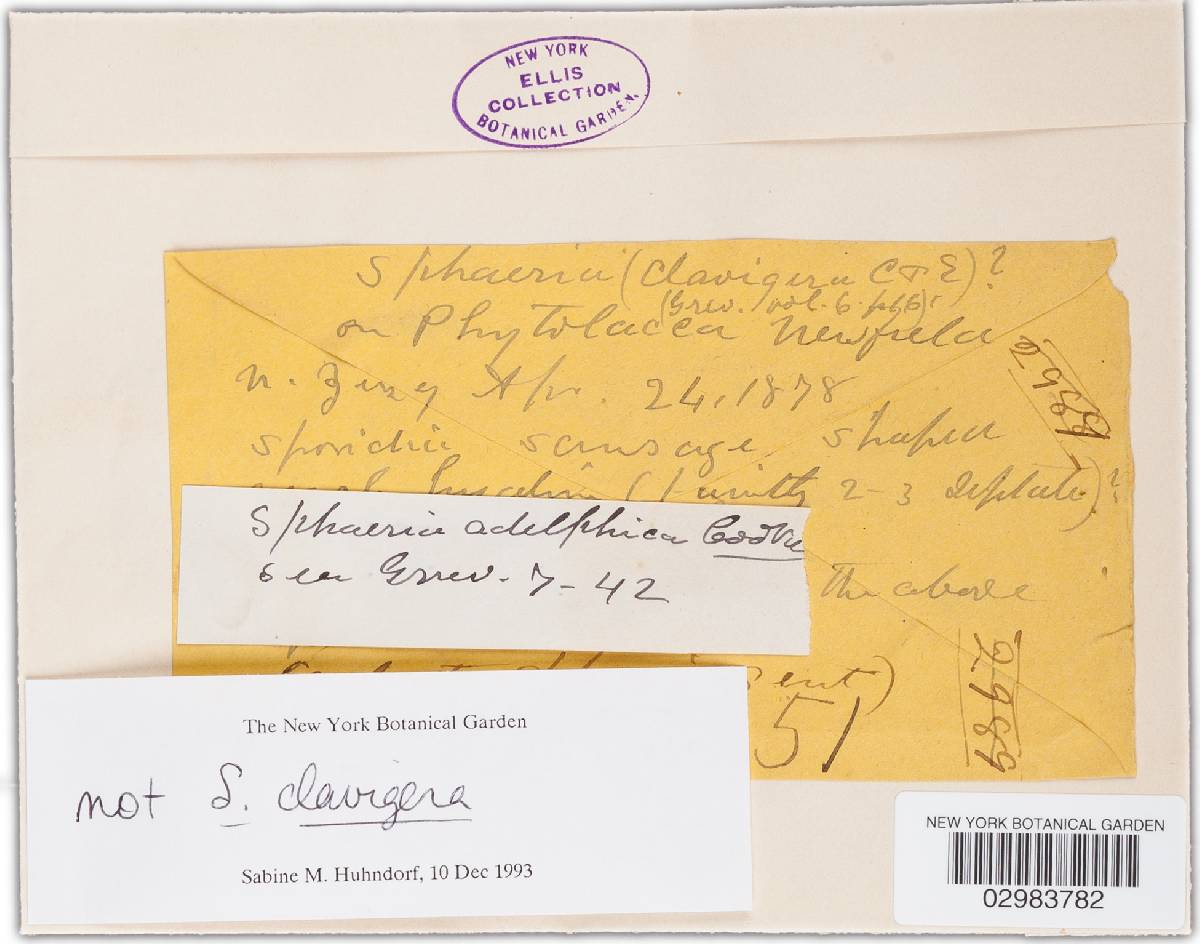 NEW YORK
ELLIS
COLLECTION
BOTANICAL GARDEN.
Sphaeria (clavigera C & E)?
(Grev. vol. 6.
on Phytolacca Newfield
N. Jersey Apr. 24, 1878
sporidia sausage shaped
hyaline (faintly 2-3 septate)?
Sphaeria adelphica Cooke
see Grev. 7-42
the above
sent)
51
2989
The New York Botanical Garden
not S. clavigera
Sabine M. Huhndorf, 10 Dec 1993
NEW YORK BOTANICAL GARDEN
02983782